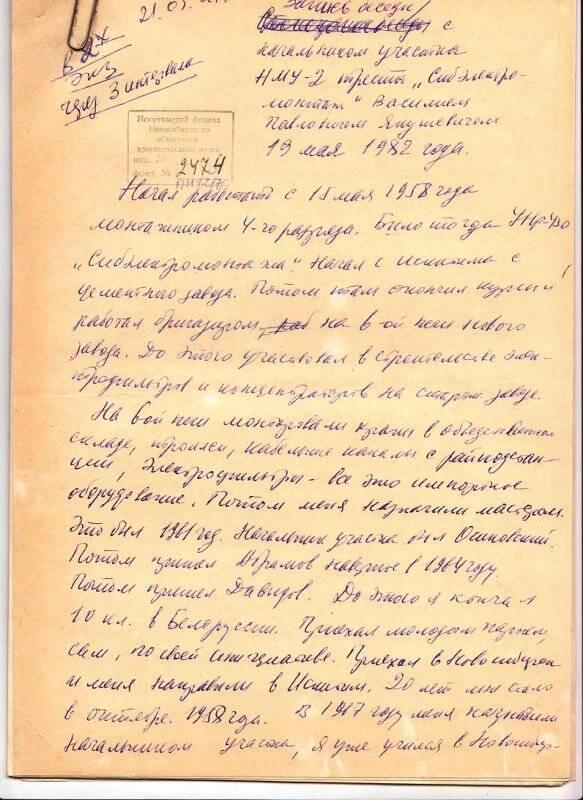 21.05.
в 2х
экз
через 3 интервала
Запись беседы
с
начальником участка
НМУ-2 треста „Сибэлектро-
монтаж" Василием
Павловичем Янушевичем
19 мая 1982 года.
Искитимский филиал
Новосибирского
областного
краеведческого музея
инв. №
фонд № 2474
Начал работать с 15 мая 1958 года
монтажником 4-го разряда. Было тогда
„Сибэлектромонтажа". Начал с Искитима с
цементного завода. Потом там окончил курсы и
работал бригадиром, на 6ой печи нового
завода. До этого участвовал в строительстве элек-
трофильтров и на старом заводе.
На 6ой печи монтировали краны в объединенном
складе, троллеи, кабельные каналы с районподстан-
ции, Электрофильтры - все это импортное
оборудование. Потом меня назначили мастером.
Это был 1961 год. Начальник участка был Осиновский.
Потом пришел Абрамов наверное в 1964 году.
Потом пришел Давыдов. До этого я кончал
10 кл. в Белоруссии. Приехал молодым парнем,
сам, по своей инициативе. Приехал в Новосибирск
и меня направили в Искитим. 20 лет мне стало
в октябре. 1958 года. В 1967 году меня назначили
начальником участка, я уже учился в Новосибир-